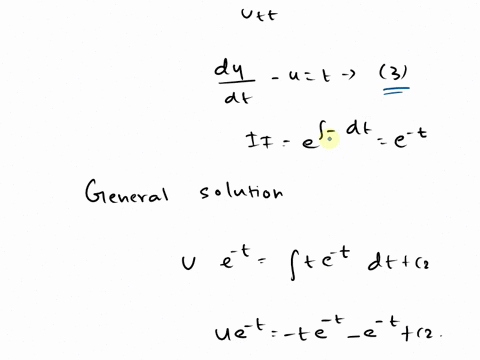 utt
dy/dt - u = t → (3)
IF = e^∫- dt = e^-t
General solution
u e^-t = ∫ t e^-t dt + c2
u e^-t = -t e^-t - e^-t + c2.